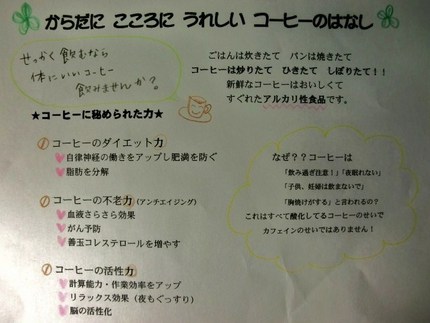 からだに こころに うれしい コーヒーのはなし
せっかく飲むなら
体にいいコーヒー
飲みませんか?
ごはんは炊きたて パンは焼きたて
コーヒーは炒りたて ひきたて しぼりたて!!
新鮮なコーヒーはおいしくて
すぐれたアルカリ性食品です。
★コーヒーに秘められた力★
① コーヒーのダイエット力
自律神経の働きをアップし肥満を防ぐ
脂肪を分解
① コーヒーの不老力(アンチエイジング)
血液さらさら効果
がん予防
善玉コレステロールを増やす
① コーヒーの活性力
計算能力・作業効率をアップ
リラックス効果(夜もぐっすり)
脳の活性化
なぜ??コーヒーは
「飲み過ぎ注意!」「夜眠れない」
「子供、妊婦は飲まないで」
「胸焼けがする」と言われるの?
これはすべて酸化してるコーヒーのせいで
カフェインのせいではありません!